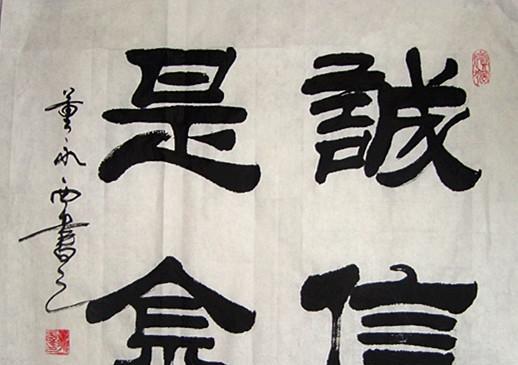 誠信
是金
董永西書之